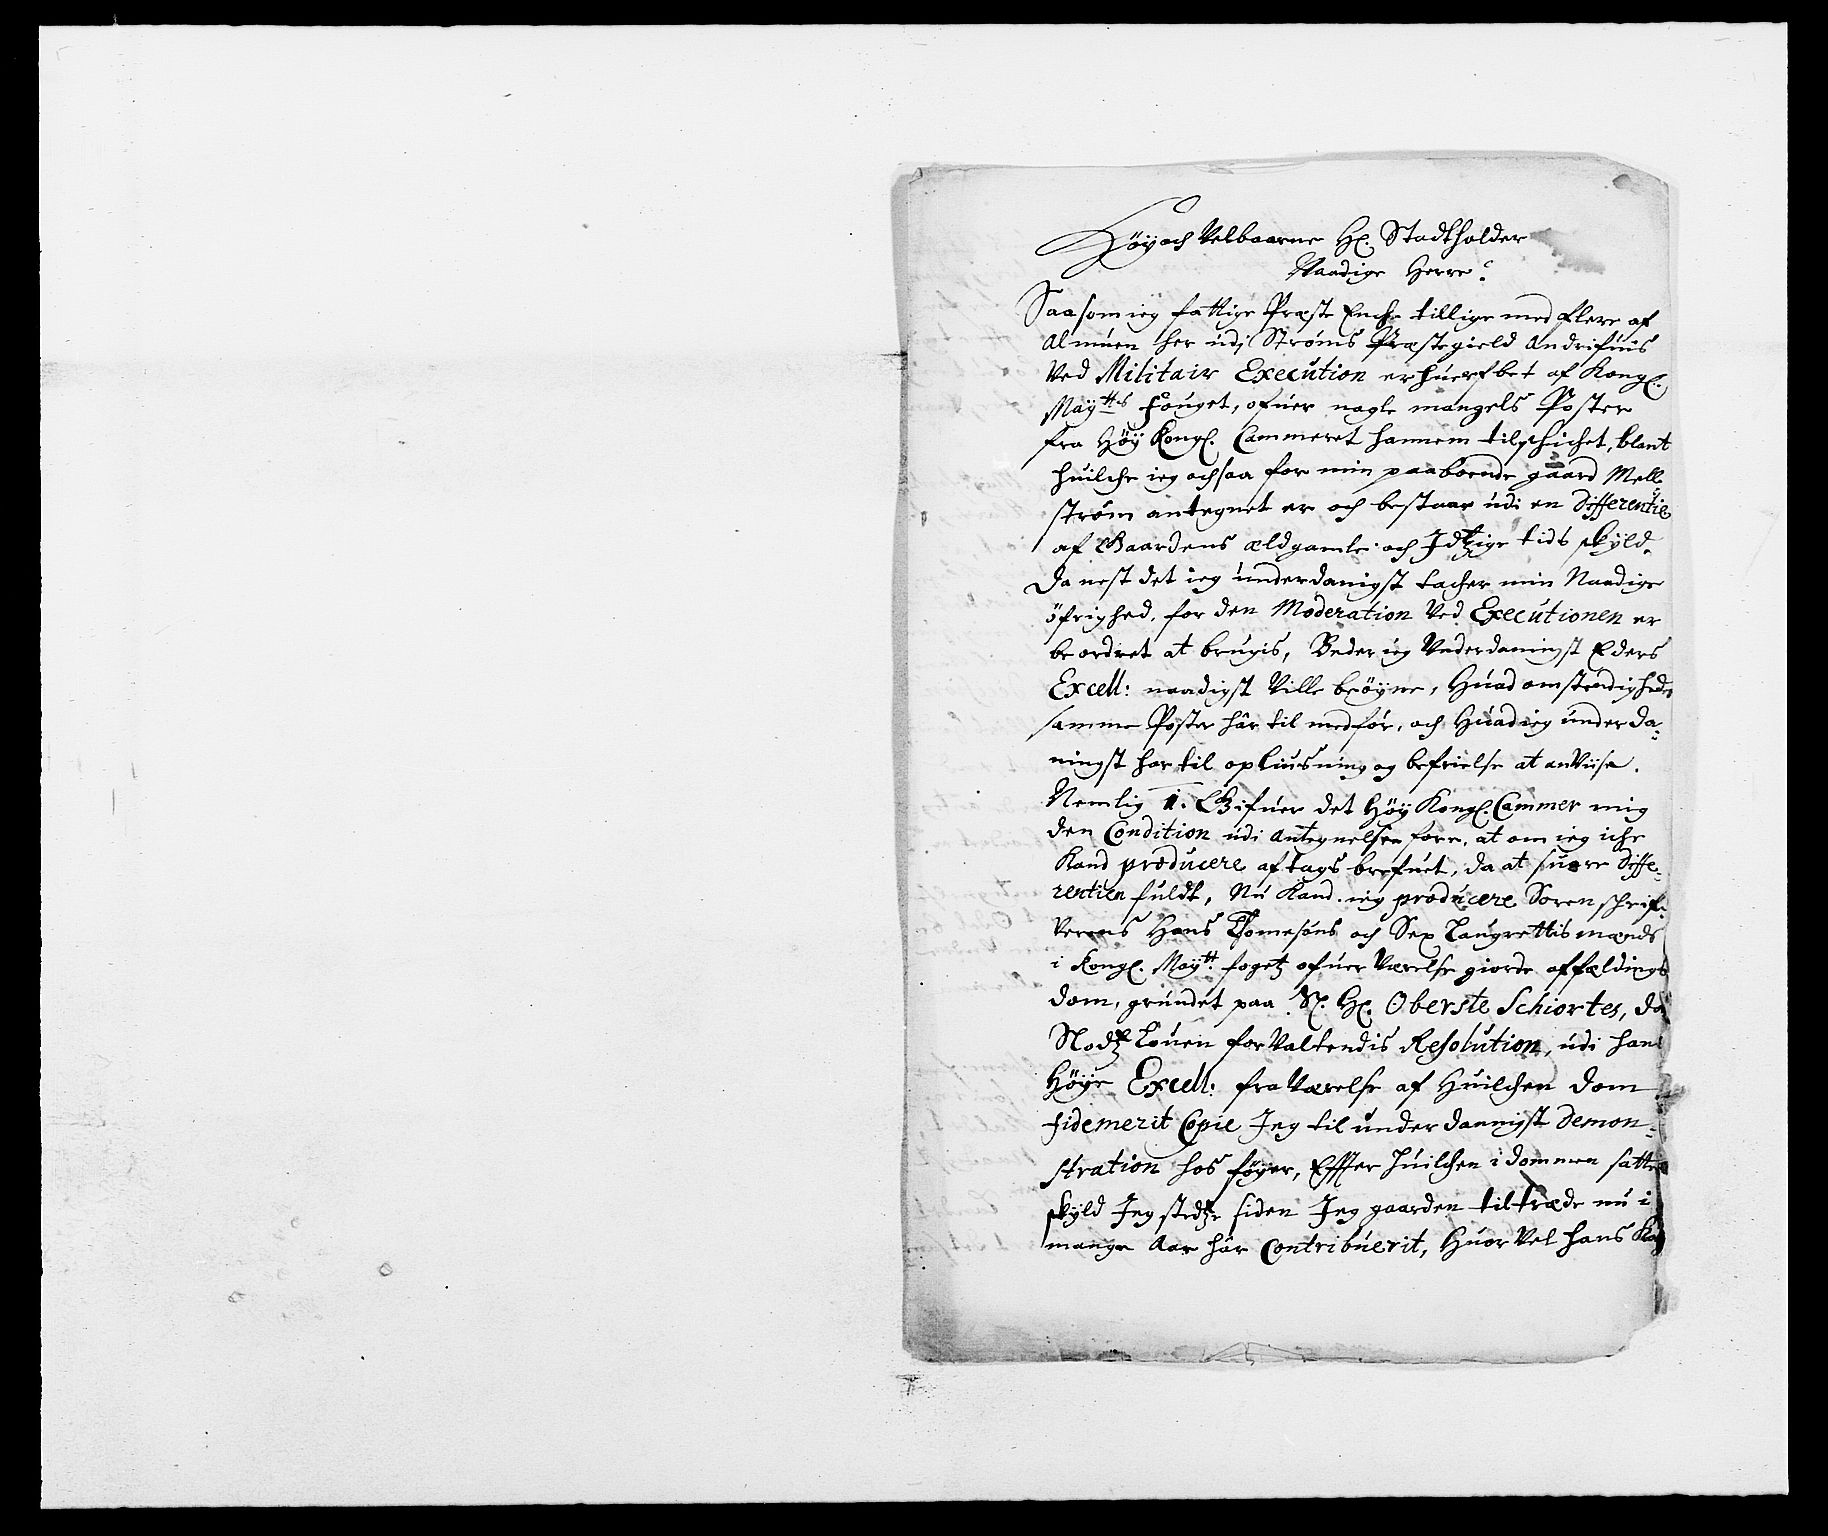 Höy och Velbaarne Hr. Stadtholder
Naadige Herre!
Saasom ieg fattige Præste Enche tillige med flere af
Almuen her udj Strøms Præstegield andrifuis
Ved Militair Execution erhuerfbet af Kongl.
Maÿtts Fouget, ofuer nogle mangels Poster
fra Höÿ Kongl. Cammeret hannem tilschichet, blant
huilche ieg ochsaa for min paaboende gaard Mell
strøm antegnet er och bestaar udi en Differentie
af Gaardens ældgamle och Jdtzige tids skÿld.
Da nest det ieg underdanigst tacher min Naadige
öfrighed, for den Moderation Ved Executionen er
beordret at brugis, Beder ieg Underdanigst Eders
Excell: naadigst Ville beöÿne, Huad omstendigheder
samme Poster här til medför, och Huad ieg underda-
nigst har til opliusning og befrielse at anViise.
Nemlig 1. Gifuer det Höÿ Kongl. Cammer mig
den Condition udi Antegnelsen fore, at om ieg iche
Kand producere aftags brefuet, da at suare Diffe-
rentien fuldt, Nu Kand ieg producere Sorenschrif-
verens Hans Thomesöns och Sex Laugrettis mænds
i Kongl. Maÿtt. fogetz ofuerværelse giorde affældings
dom, grundet paa Sl. Hr. Oberste Schiortes, da
Stadtz Louen forValtendis Resolution, udi hans
Höÿe Excell: fraVærelse af Huilchen Dom
fidemerit Copie Jeg til underdannigst Demon-
stration hos föÿer, Effter huilchen i dommen satte
skÿld Jeg stedtze siden Jeg gaarden tiltræde nu i
mange Aar här Contribuerit, Huor Vel hans